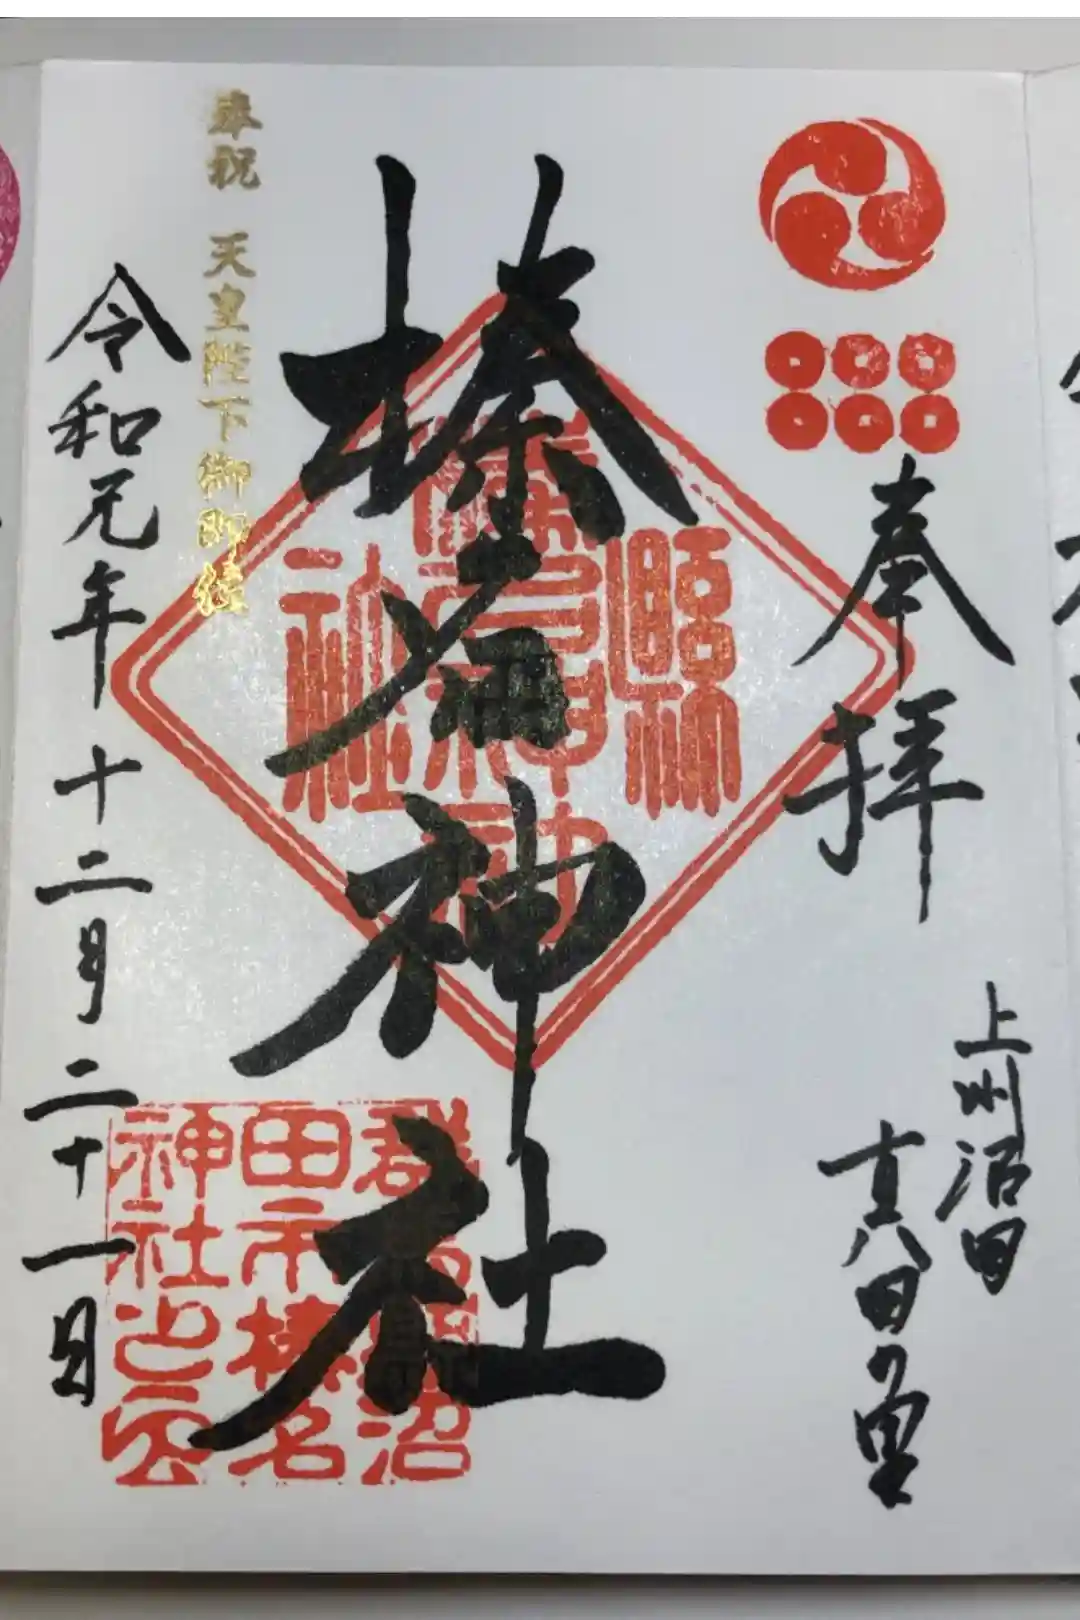 奉拝
上州沼田
真田の里
榛名神社
奉祝 天皇陛下御即位
令和元年十二月二十一日
群馬縣沼
田市榛名
神社之印